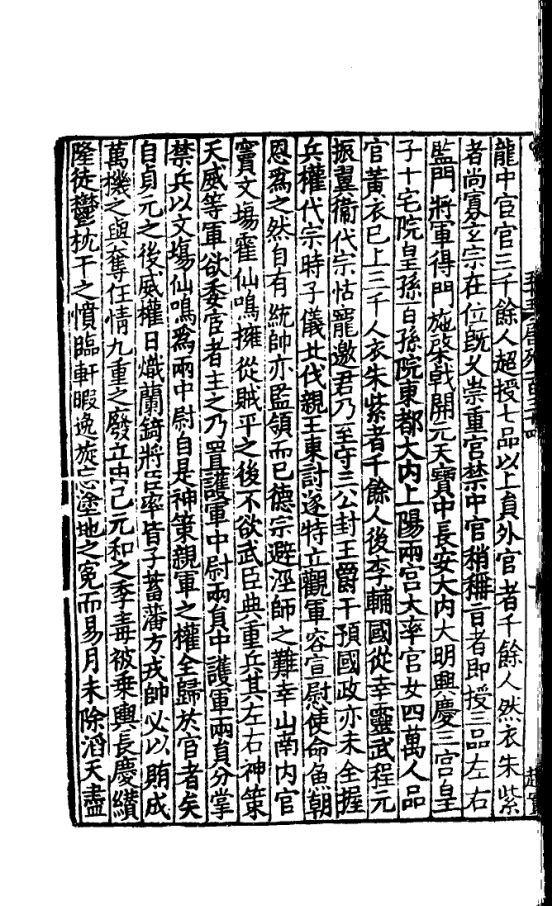 龍中宦官三千餘人超授七品以上員外官者千餘人然衣朱紫
者尚寡玄宗在位既久崇重宮禁中官稍稱旨者即授三品左右
監門將軍得門施棨戟開元天寶中長安大內大明興慶三宮皇
子十宅院皇孫百孫院東都大內上陽兩宮大率宮女四萬人品
官黃衣已上三千人衣朱紫者千餘人後李輔國從幸靈武程元
振翼衞代宗怙寵邀君乃至守三公封王爵干預國政亦未全握
兵權代宗時子儀北伐親王東討遂特立觀軍容宣慰使命魚朝
恩爲之然自有統帥亦監領而已德宗避涇師之難幸山南內官
竇文塲霍仙鳴擁從賊平之後不欲武臣典重兵其左右神策
天威等軍欲委宦者主之乃置護軍中尉兩員中護軍兩員分掌
禁兵以文塲仙鳴爲兩中尉自是神策親軍之權全歸於宦者矣
自貞元之後威權日熾蘭錡將臣率皆子蓄藩方戎帥必以賄成
萬機之與奪任情九重之廢立由己元和之季毒被乘輿長慶纘
隆徒鬱枕干之憤臨軒暇逸旋忘塗地之冤而易月未除滔天盡